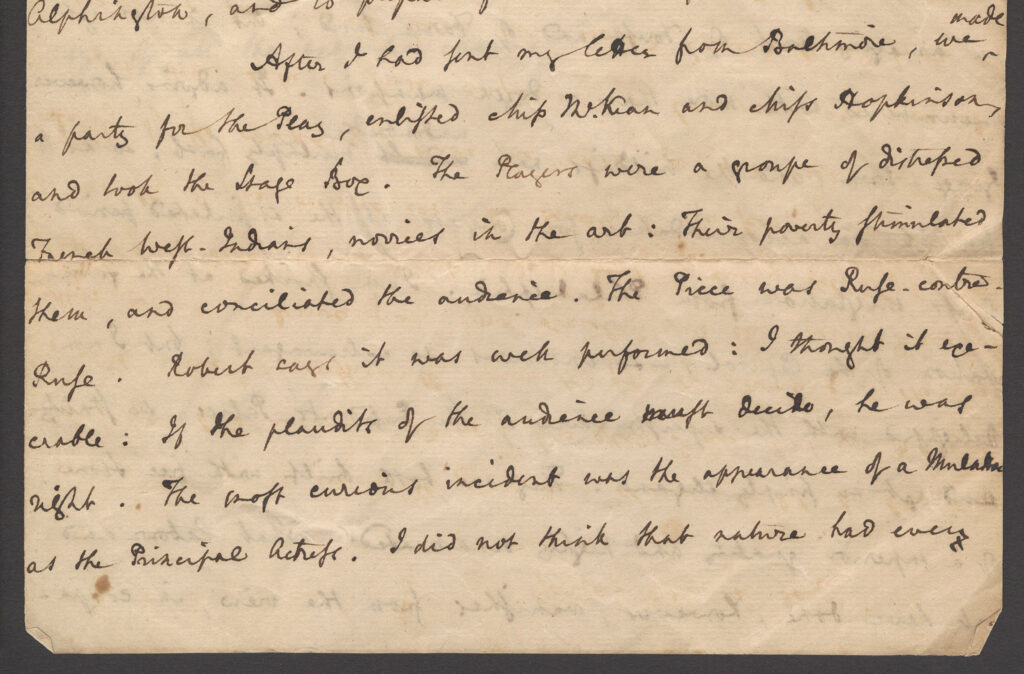 Alphington, and to
made
After I had sent my letter from Baltimore, we
a party for the Play, enlisted Miss McKean and Miss Hopkinson,
and took the Stage Box. The Players were a groupe of distressed
French West-Indians, novices in the art: Their poverty stimulated
them, and conciliated the audience. The Piece was Ruse-contre-
Ruse. Robert says it was well performed: I thought it exe-
crable: If the plaudits of the audience must decide, he was
right. The most curious incident was the appearance of a Mulatto
as the Principal Actress. I did not think that nature had ever